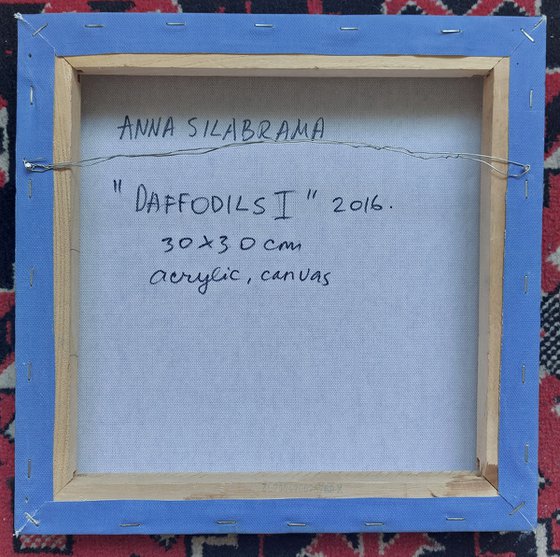 ANNA SILABRAMA
"DAFFODILS I" 2016.
30x30cm
acrylic, canvas